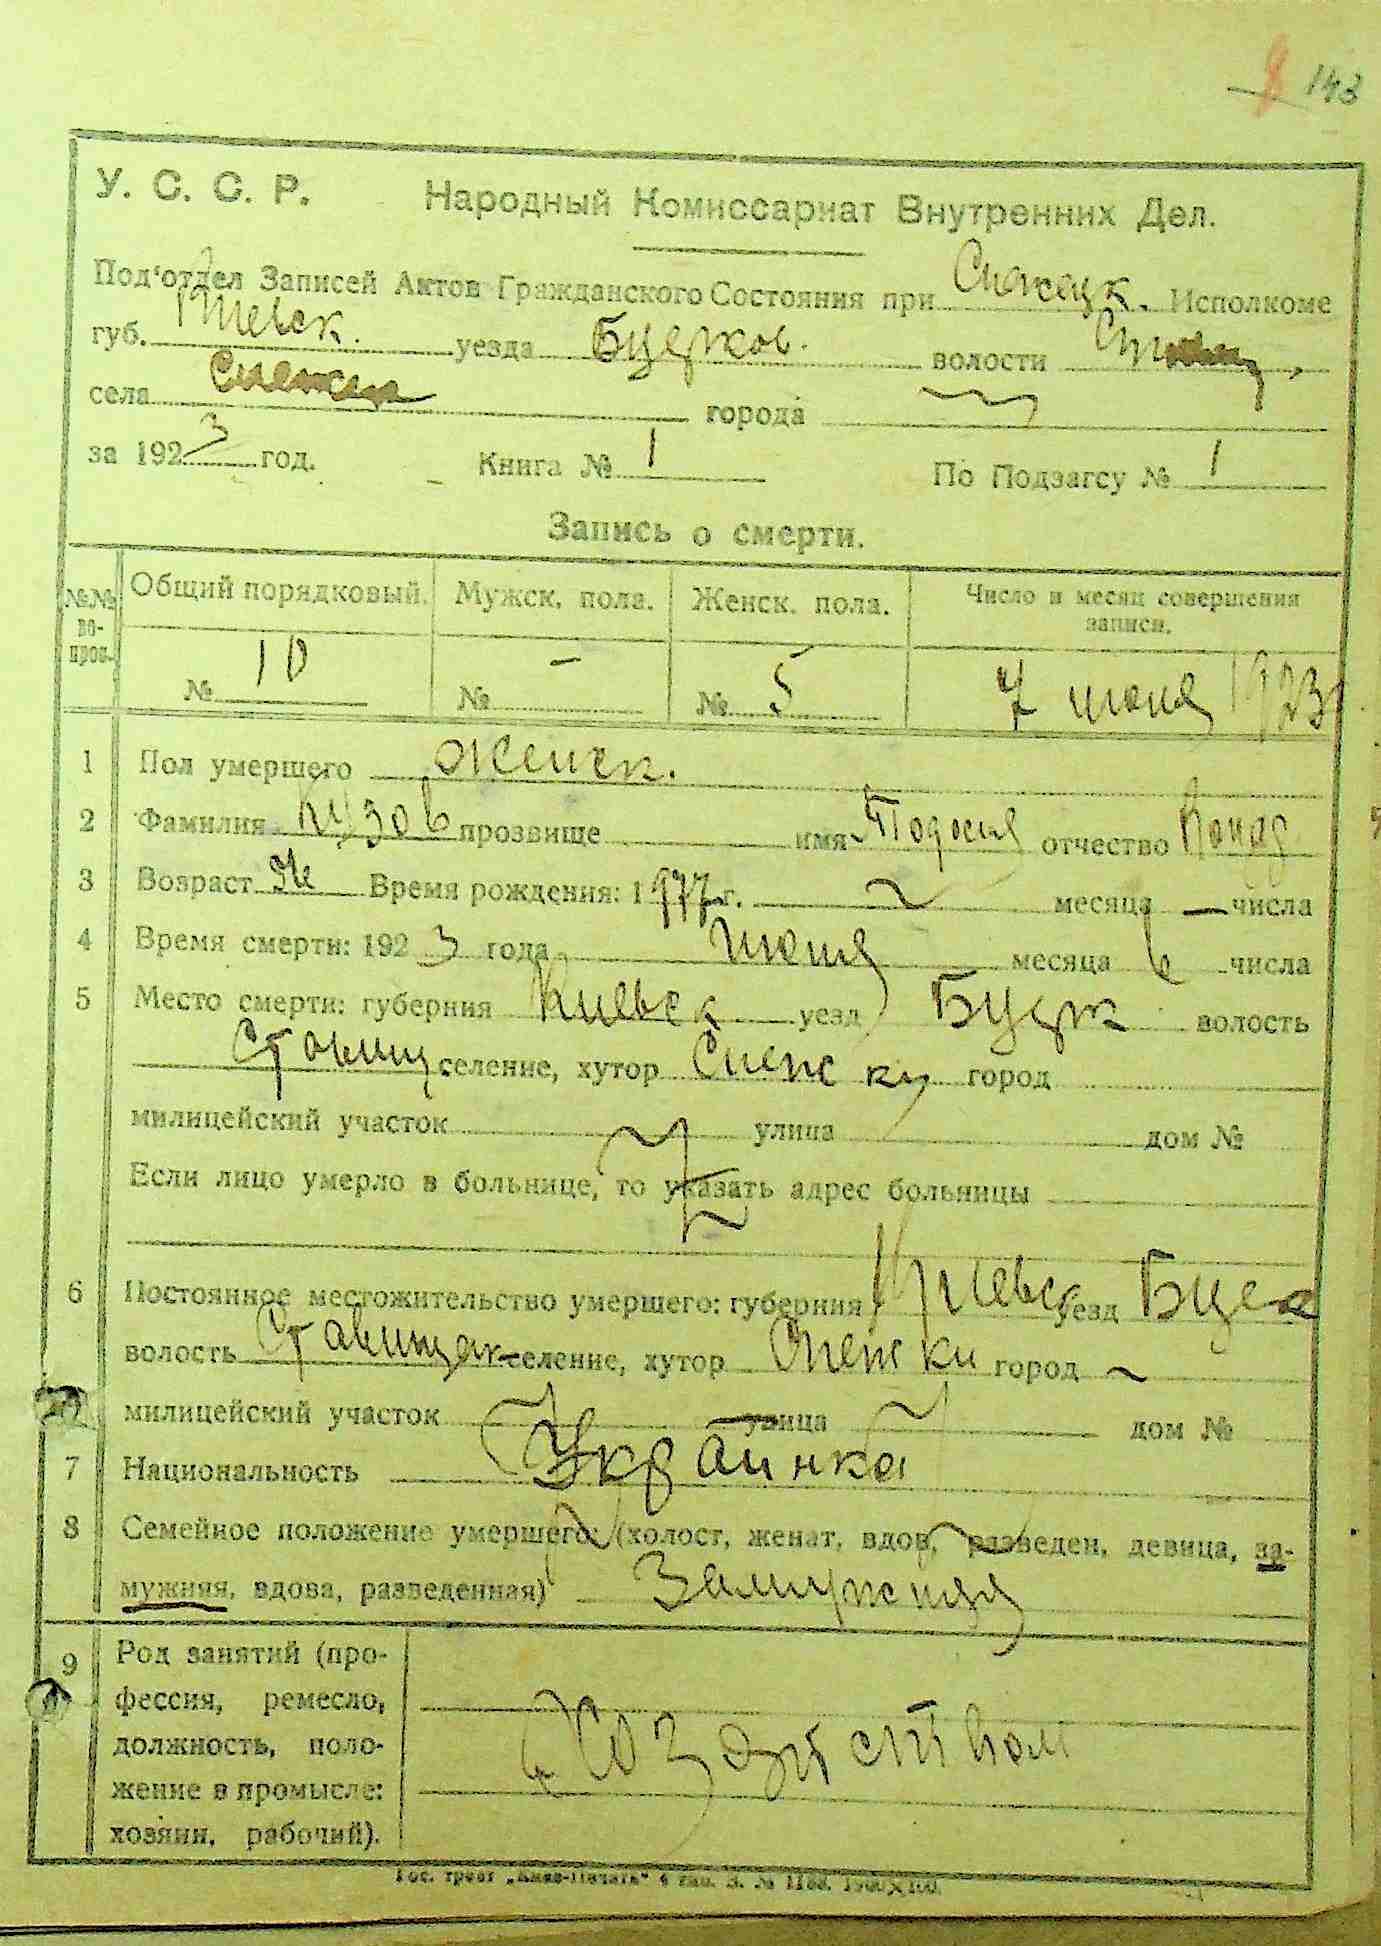 143
У. С. С. Р. Народный Комиссариат Внутренних Дел.
Под'отдел Записей Актов Гражданского Состояния при Исполкоме
губ. Киевск. уезда Бцерков. волости
села города
за 1923 год. Книга № 1 По Подзагсу № 1
Запись о смерти.
№№ во-прос. Общий порядковый. Мужск. пола. Женск. пола. Число и месяц совершения записи.
№ 10 № – № 5 7 июня 1923
1 Пол умершего Женск.
2 Фамилия Кузов прозвище имя Тодосия отчество
3 Возраст Время рождения: 1977 г. месяца — числа
4 Время смерти: 1923 года июня месяца 6 числа
5 Место смерти: губерния Киевск уезд Бцерк волость
Ставищ. селение, хутор Снежки город
милицейский участок улица дом №
Если лицо умерло в больнице, то указать адрес больницы
6 Постоянное местожительство умершего: губерния Киевск уезд Бцерк
волость Ставищек селение, хутор Снежки город
милицейский участок улица дом №
7 Национальность Украинка
8 Семейное положение умершего: (холост, женат, вдов, разведен, девица, за-
мужняя, вдова, разведенная) Замужняя
9 Род занятий (про-
фессия, ремесло,
должность, поло-
жение в промысле:
хозяин, рабочий).
Хозяйством
Гос. трест „Киев-Печать“